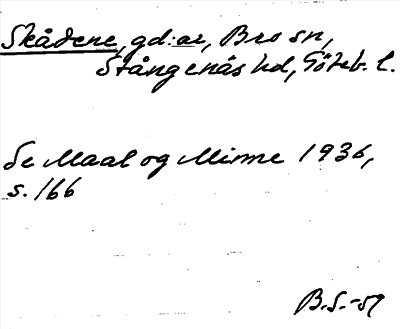 Skådene, gd:ar, Bro sn,
Stångenäs hd, Göteb. l.
Se Maal og Minne 1936,
s. 166
B.S.-59